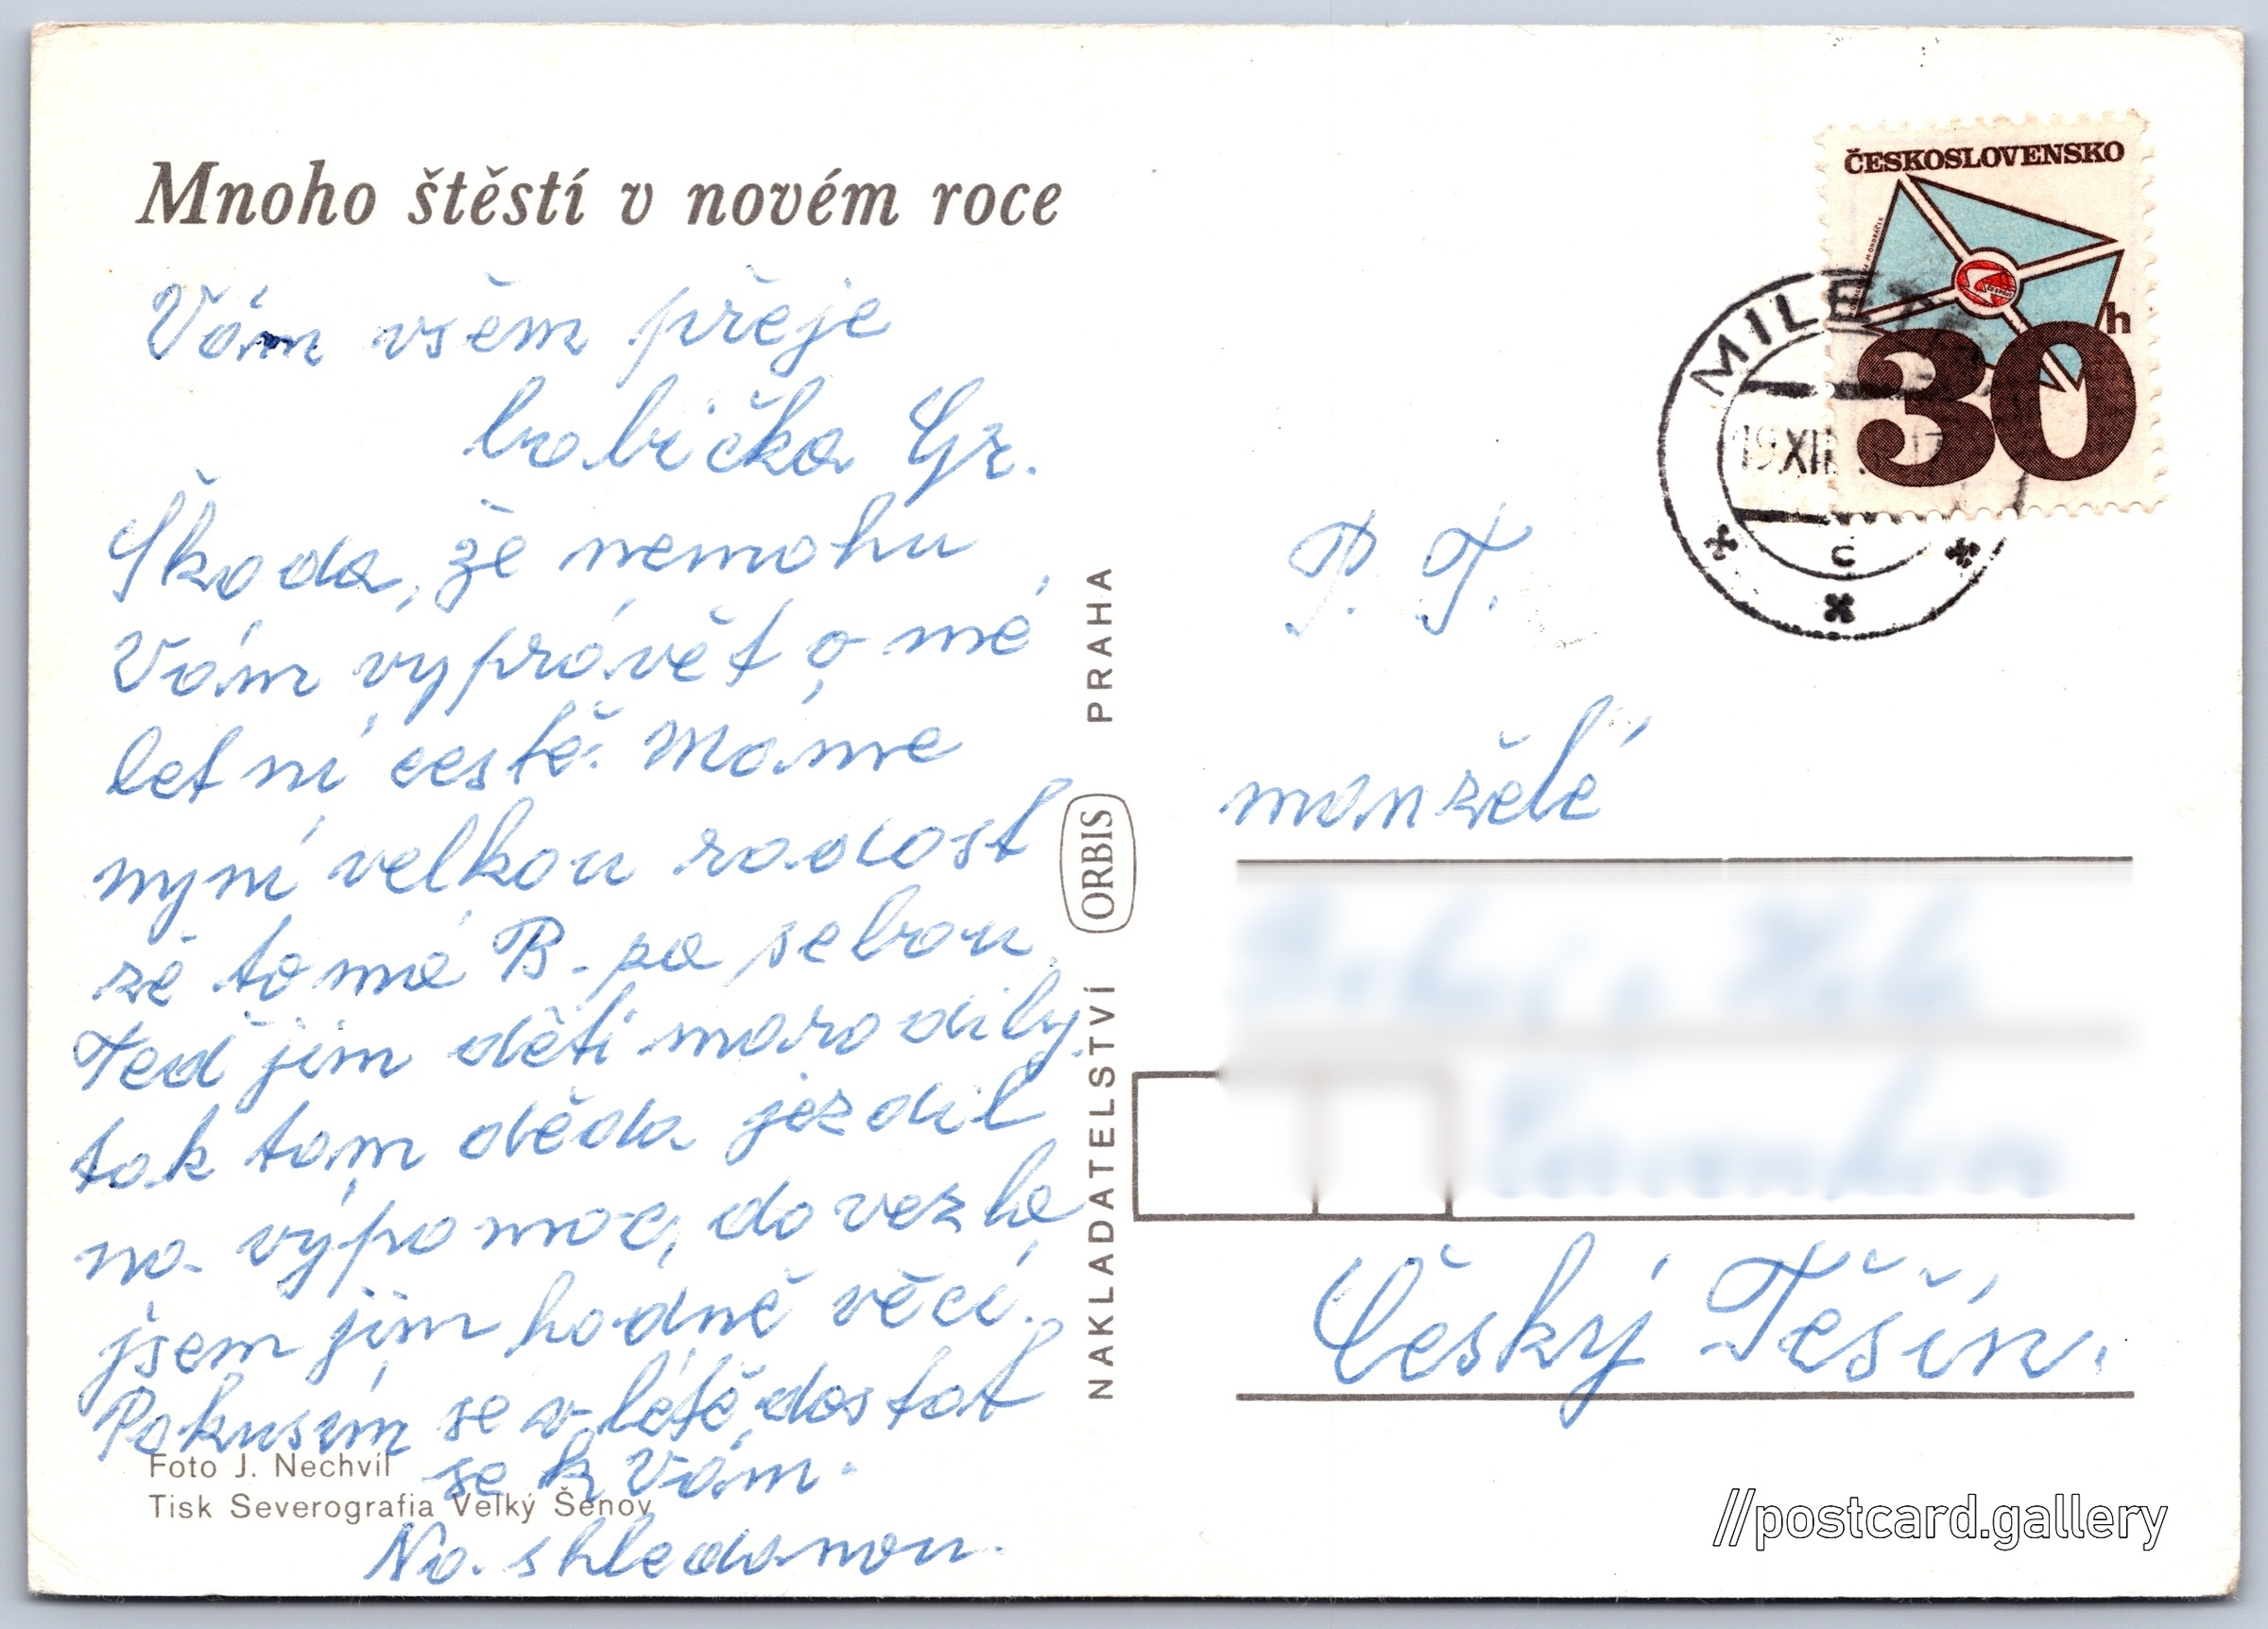 Mnoho štěstí v novém roce
Vám všem přeje
babička Gr.
Škoda, že nemohu
Vám vyprávět o mé
letní cestě. Máme
nyní velkou radost
že to má B. za sebou.
Teď jim děti marodily.
tak tam děda jezdil
na výpomoc, dovezla
jsem jim hodně věcí.
Pokusím se v létě dostat
se k Vám.
Na shledanou.
Foto J. Nechvíl
Tisk Severografia Velký Šenov
NAKLADATELSTVÍ ORBIS PRAHA
ČESKOSLOVENSKO
30 h
19.XII
C
P. T.
manželé
Český Těšín.
//postcard.gallery